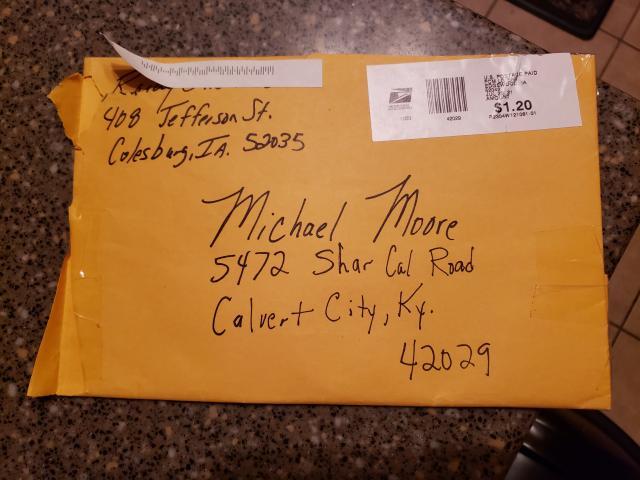 408 Jefferson St.
Colesburg, IA. 52035
U.S. POSTAGE PAID
$1.20
42029
Michael Moore
5472 Shar Cal Road
Calvert City, Ky.
42029